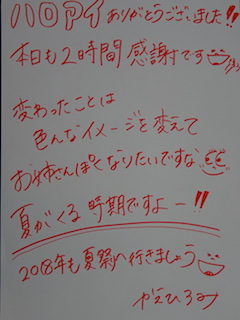 ハロアイ ありがとうございました!!
本日も2時間感謝です
変わったことは
色んなイメージを変えて
お姉さんぽくなりたいですな
夏がくる時期ですよー!!
2018年も夏祭へ行きましょう
かえひろみ